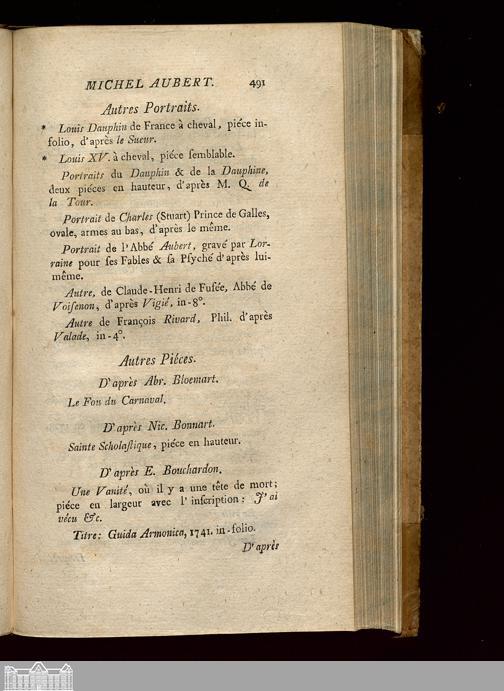 MICHEL AUBERT. 491
Autres Portraits.
* Louis Dauphin de France à cheval, piéce in-
folio, d'après le Sueur.
* Louis XV. à cheval, piéce ſemblable.
Portraits du Dauphin & de la Dauphine,
deux piéces en hauteur, d'après M. Q. de
la Tour.
Portrait de Charles (Stuart) Prince de Galles,
ovale, armes au bas, d'après le même.
Portrait de l'Abbé Aubert, gravé par Lor-
raine pour ſes Fables & ſa Pſyché d'après lui-
même.
Autre, de Claude-Henri de Fuſée, Abbé de
Voiſenon, d'après Vigié, in-8°.
Autre de François Rivard, Phil. d'après
Valade, in-4°.
Autres Piéces.
D'après Abr. Bloemart.
Le Fou du Carnaval.
D'après Nic. Bonnart.
Sainte Scholaſtique, piéce en hauteur.
D'après E. Bouchardon.
Une Vanité, où il y a une tête de mort;
piéce en largeur avec l'inſcription: J'ai
vécu &c.
Titre: Guida Armonica, 1741. in-folio.
D'après